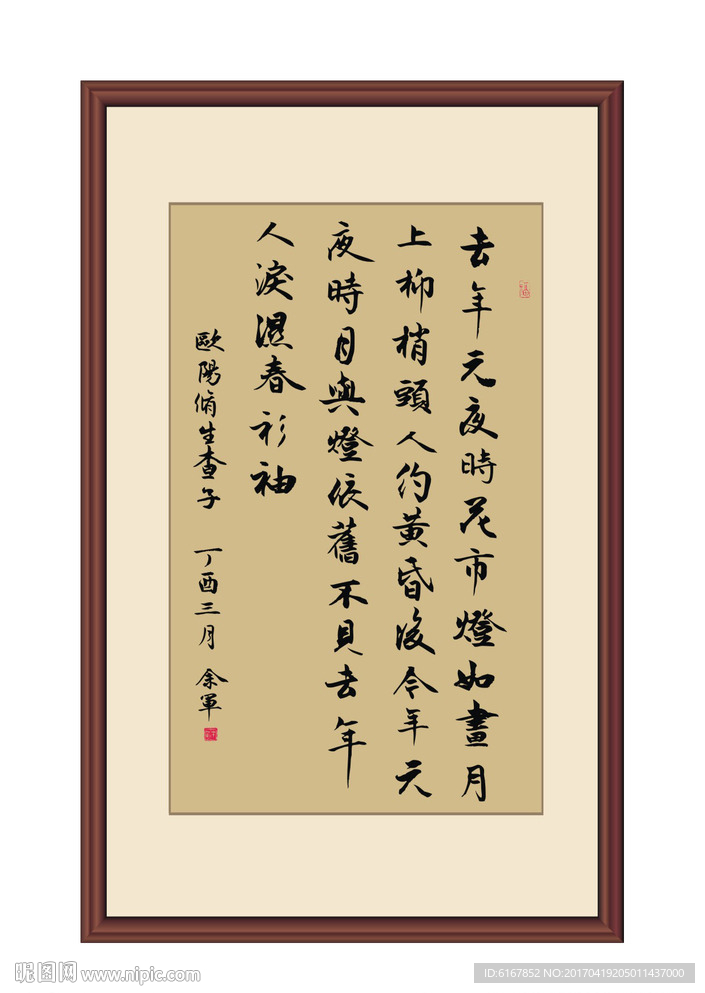 去年元夜時花市燈如畫月
上柳梢頭人約黃昏後今年元
夜時月與燈依舊不見去年
人淚濕春衫袖
歐陽脩生查子 丁酉三月 余軍
昵图网 www.nipic.com
ID:6167852 NO:20170419205011437000